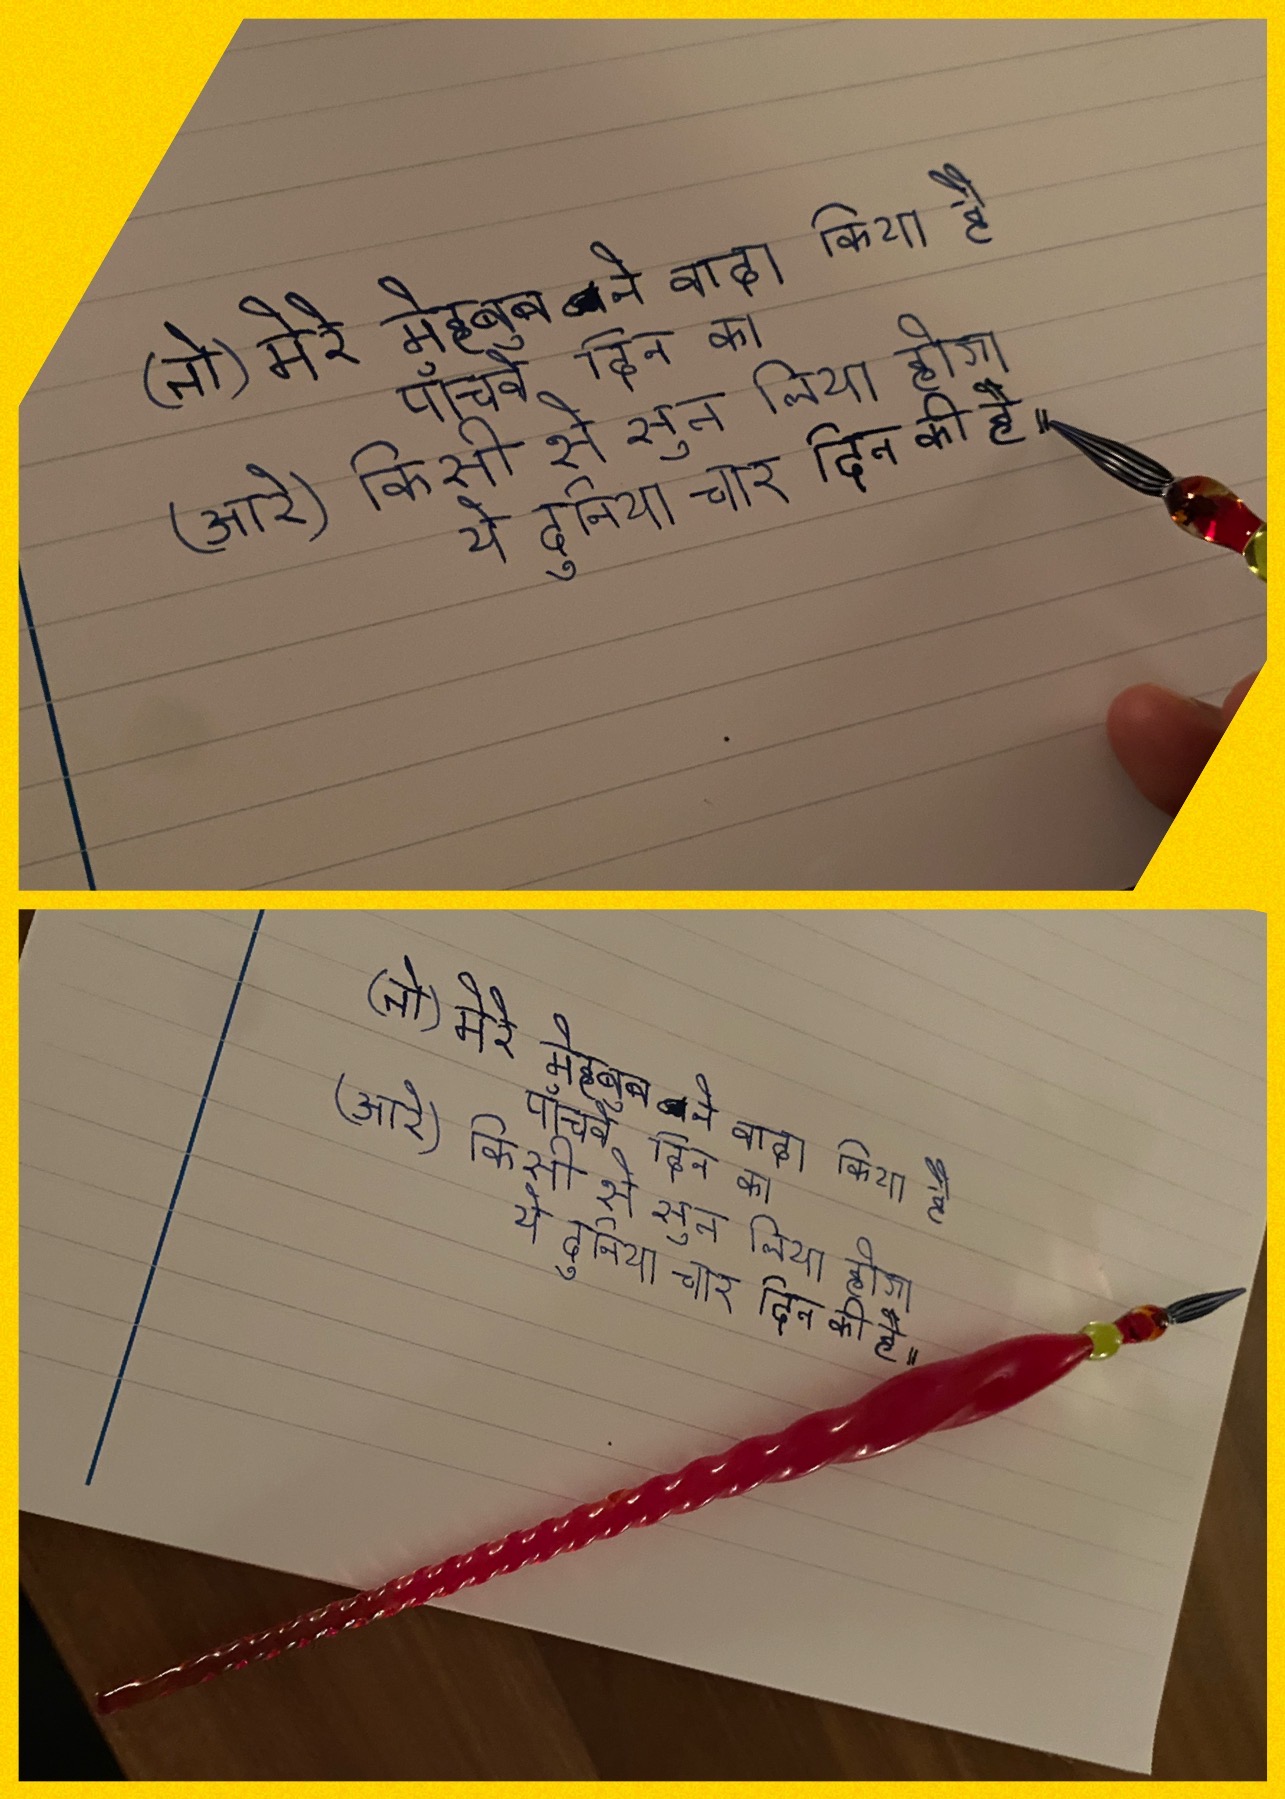 (तो) मेरे मेहबुब ने वादा किया है
पाँचवे दिन का
(आरे) किसी से सुन लिया होगा
ये दुनिया चार दिन की है॥
(तो) मेरे मेहबुब ने वादा किया है
पाँचवे दिन का
(आरे) किसी से सुन लिया होगा
ये दुनिया चार दिन की है॥